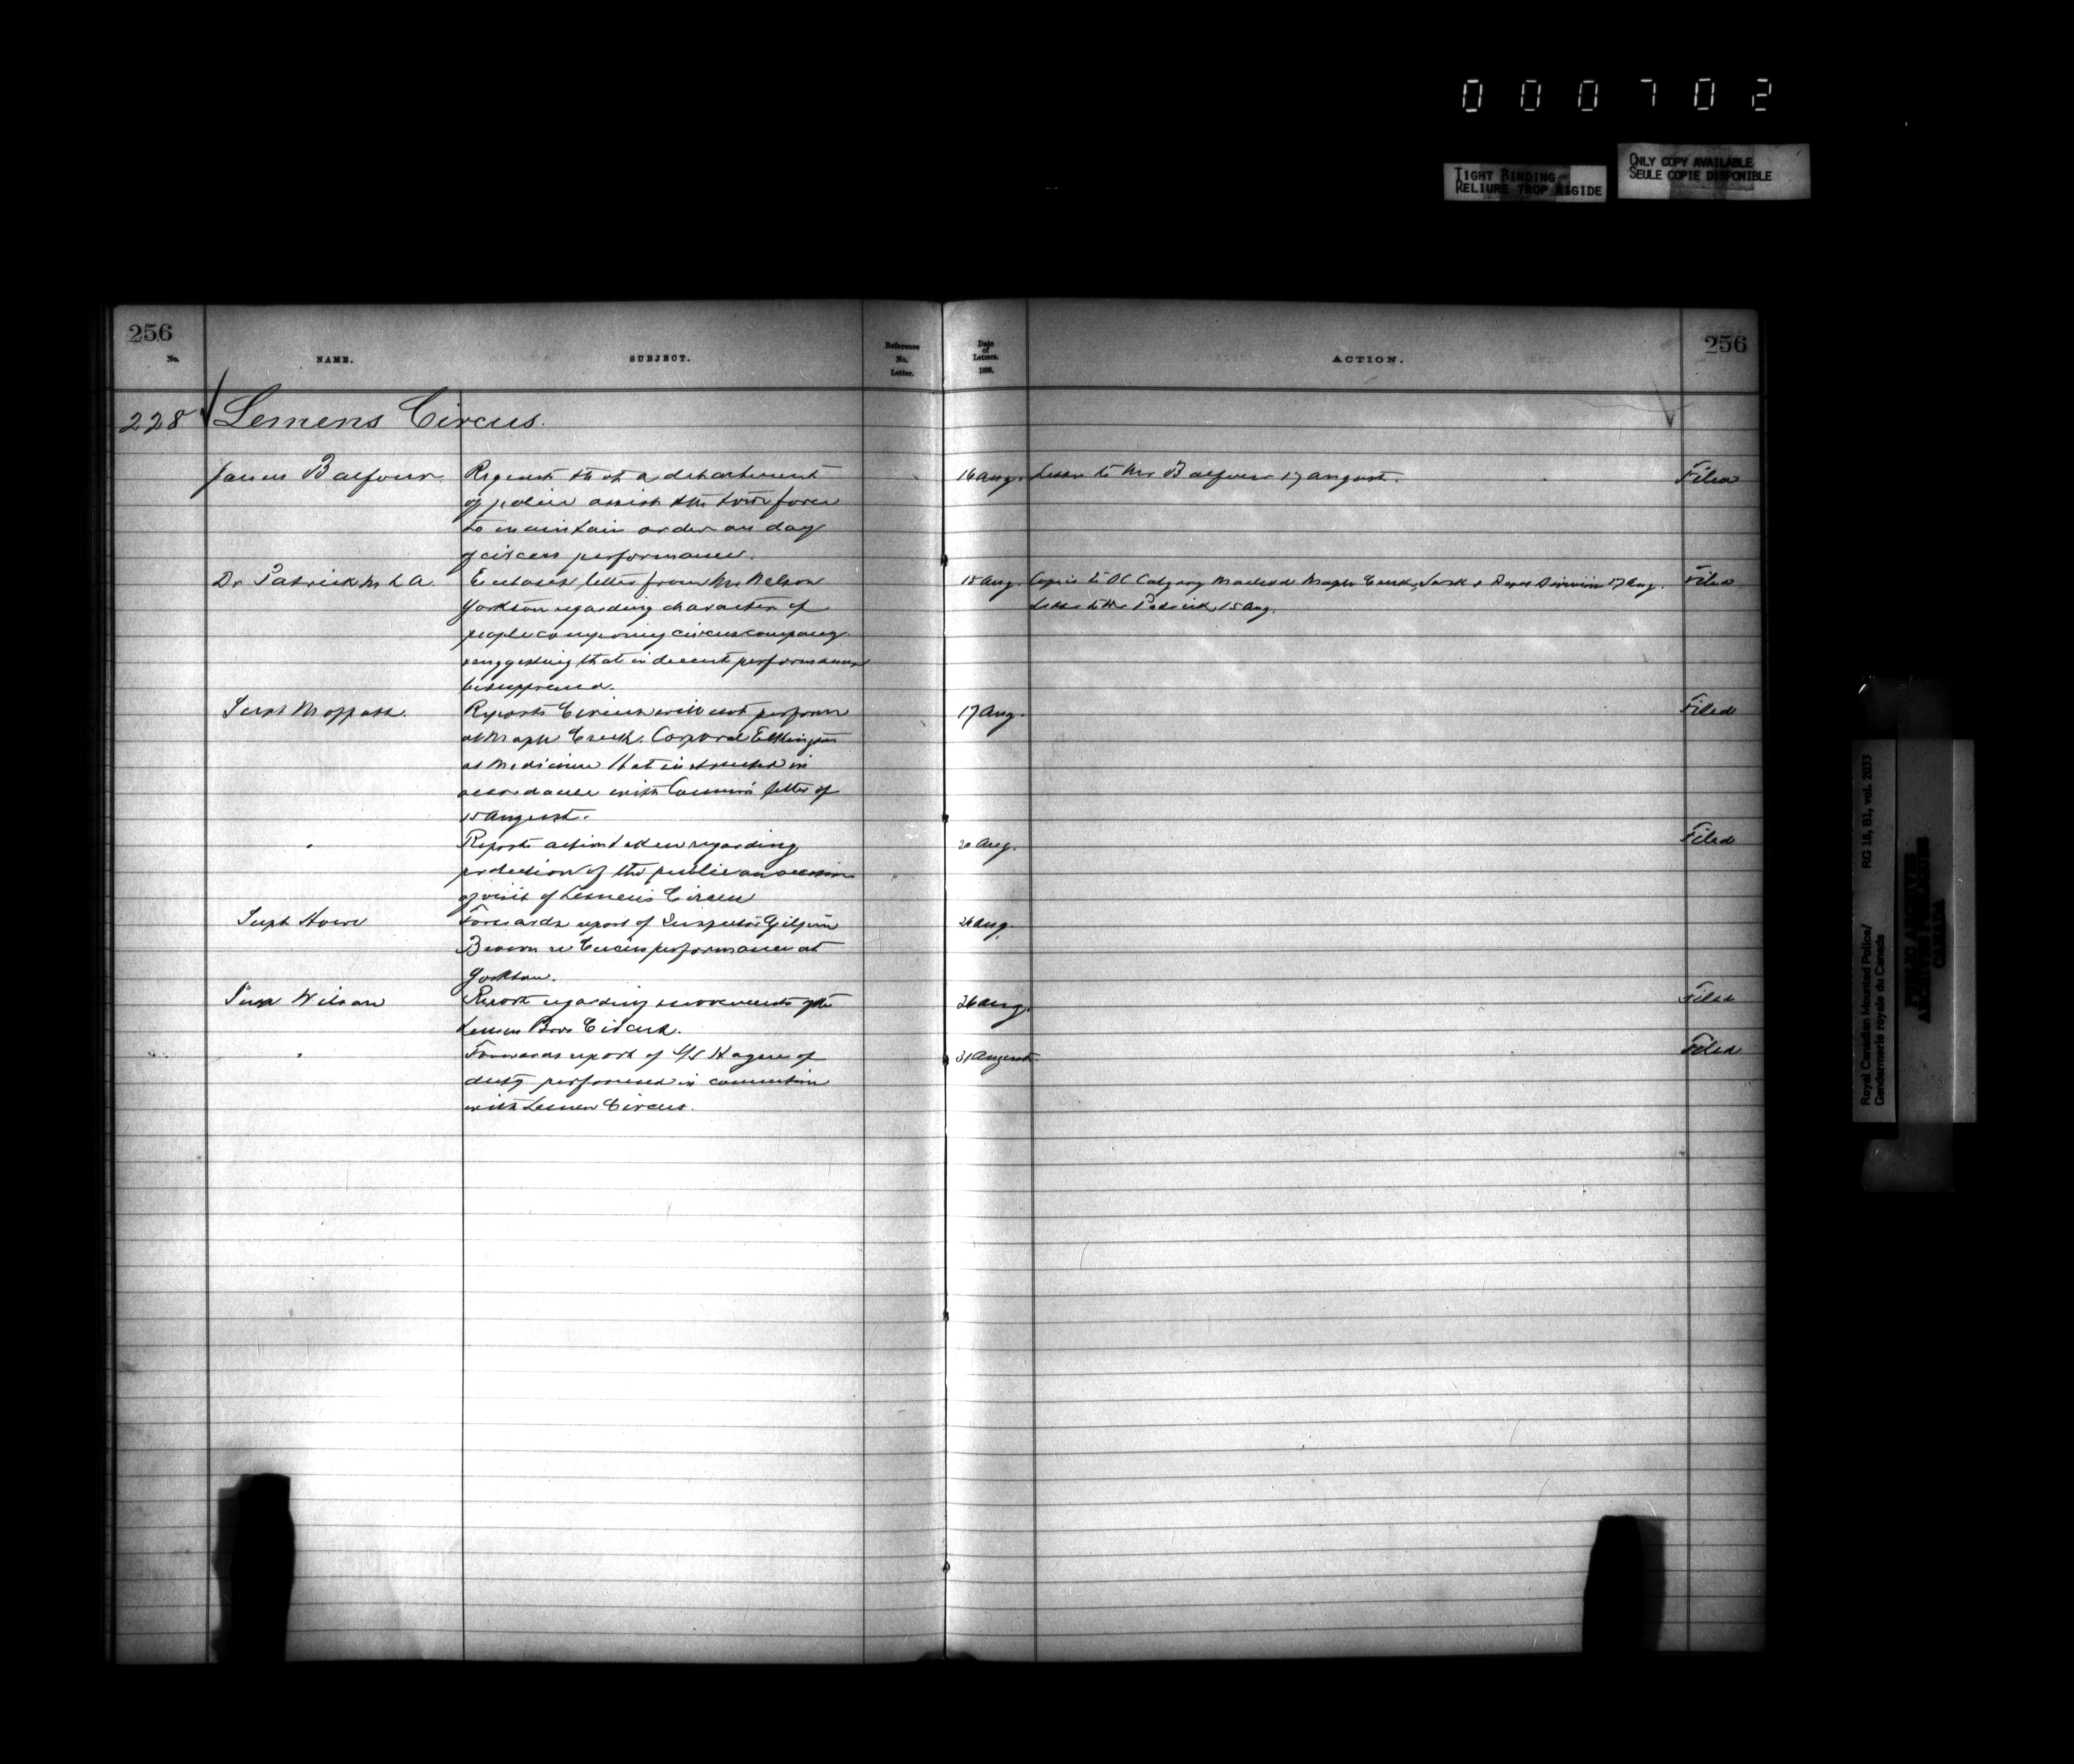 000702
TIGHT BINDING
RELIURE TROP RIGIDE
ONLY COPY AVAILABLE
SEULE COPIE DISPONIBLE
256
No.
NAME.
SUBJECT.
Reference
No.
Letter.
Date
of
Letters.
ACTION.
256
228 Lemens Circus.
James Balfour
Requests that a detachment
of police assist the town force
to maintain order on day
of circus performance.
16 Aug.
Letter to Mr Balfour 17 August.
Filed
Dr Patrick M L A.
Encloses letter from Mr Nelson
Yorkton regarding character of
people composing circus company
suggesting that indecent performances
be suppressed.
15 Aug.
Copies to OC Calgary Macleod Maple Creek, Sask & Depot Division 17 Aug.
Letter to Mr Patrick 15 Aug.
Filed
Supt Moffatt.
Reports Circus will not perform
at Maple Creek. Corporal
at Medicine Hat instructed in
accordance with Commr's letter of
15 August.
17 Aug.
Filed
"
Reports action taken regarding
protection of the public on occasion
of visit of Lemens Circus
20 Aug.
Filed
Supt Howe
Forwards report of Inspector Gilpin
Brown re Circus performance at
Yorkton.
26 Aug.
Supt Wilson
Report regarding movements of the
Lemen Bros Circus.
26 Aug.
Filed
"
Forwards report of S/S Hagen of
duty performed in connection
with Lemen Circus.
31 August
Filed
Royal Canadian Mounted Police/
Gendarmerie royale du Canada
RG 18, B1, vol. 2033
PUBLIC ARCHIVES
ARCHIVES PUBLIQUES
CANADA